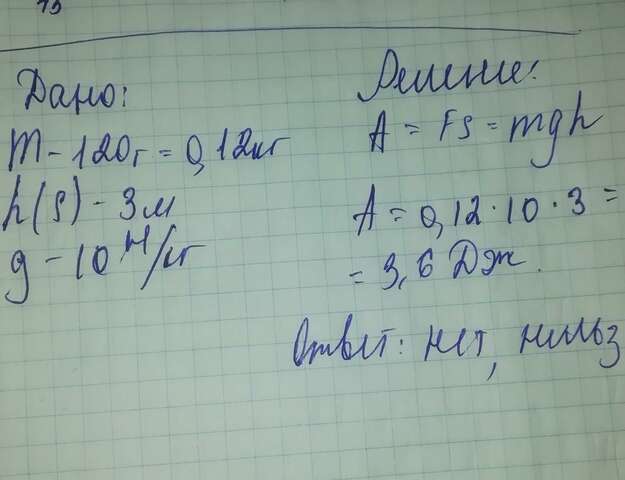 Дано:
m - 120г = 0,12кг
h(s) - 3м
g - 10 Н/кг
Решение:
A = Fs = mgh
A = 0,12 · 10 · 3 =
= 3,6 Дж.
Ответ: нет, нильз